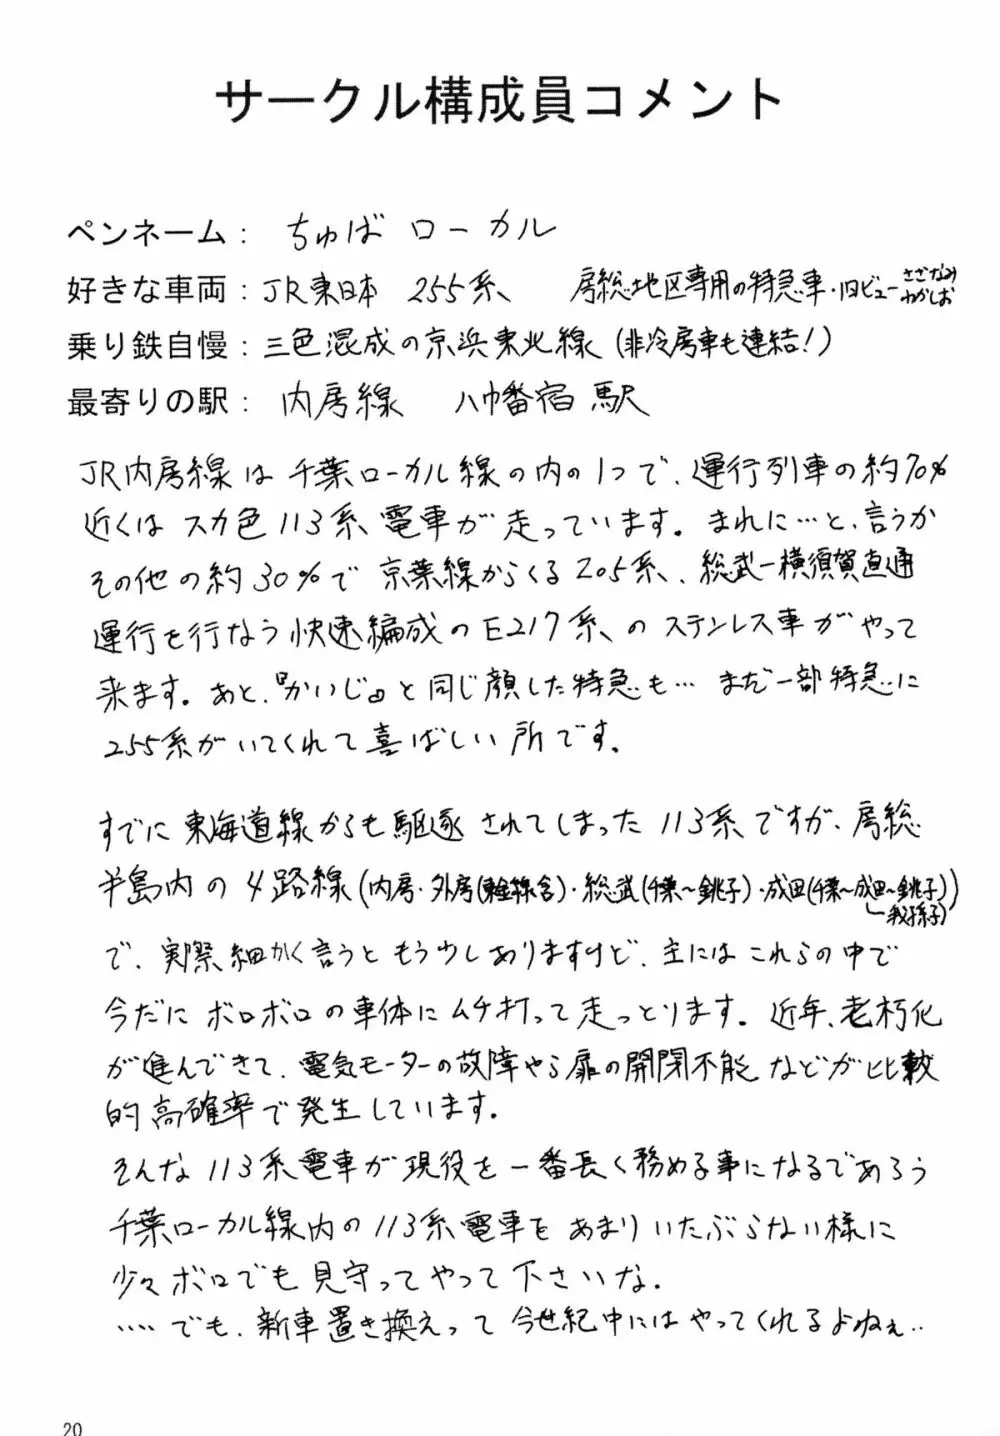 サークル構成員コメント
ペンネーム： ちゅば ローカル
好きな車両：JR東日本 255系、 房総地区専用の特急車・旧ビューさざなみ
わかしお
乗り鉄自慢：三色混成の京浜東北線（非冷房車も連結！）
最寄りの駅： 内房線 八幡宿駅
JR内房線は千葉ローカル線の内の1つで、運行列車の約70%
近くはスカ色113系、電車が走っています。まれに…と、言うか
その他の約30%で京葉線からくる205系、総武ー横須賀直通
運行を行なう快速編成のE217系、のステンレス車がやって
来ます。あと、『かいじ』と同じ顔した特急も… まだ一部特急に
255系がいてくれて喜ばしい所です。
すでに東海道線からも駆逐されてしまった113系ですが、房総
半島内の4路線（内房・外房（東金線含）・総武（千葉〜銚子）・成田（千葉〜成田〜銚子））
我孫子
で、実際細かく言うともう少しありますけど、主にはこれらの中で
今だにボロボロの車体にムチ打って走っとります。近年、老朽化
が進んできて、電気モーターの故障やら扉の開閉不能などが比較
的高確率で発生しています。
そんな113系電車が現役を一番長く務める事になるであろう
千葉ローカル線内の113系電車をあまりいたぶらない様に
少々ボロでも見守ってやって下さいな。
‥‥でも、新車置き換えって今世紀中にはやってくれるよねぇ‥
20